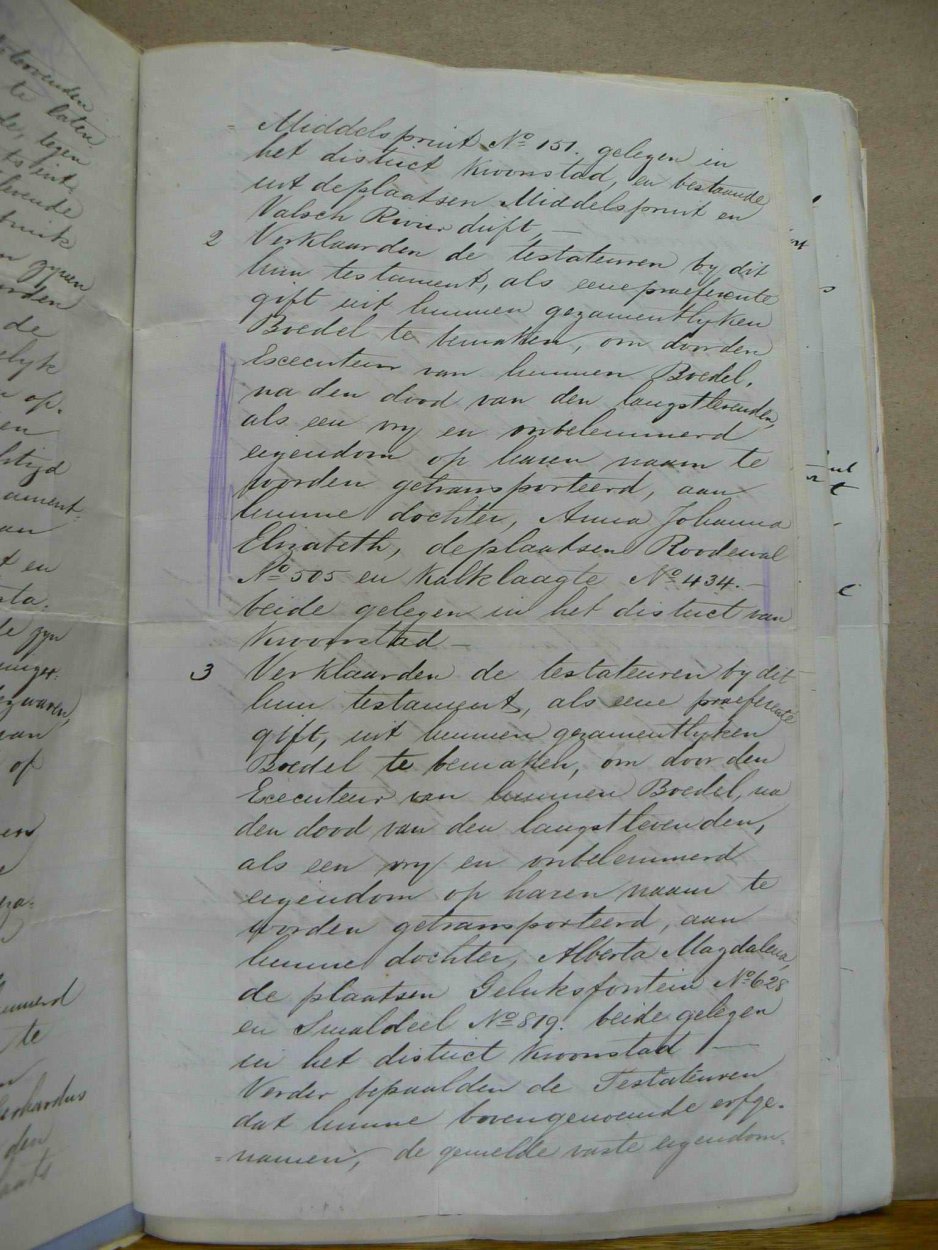 Middelspruit No 151. gelegen in
het district Kroonstad, en bestaande
uit de plaatsen Middelspruit en
Valsch Rivier drift —
2 Verklaarden de testateuren by dit
hun testament, als eene praeferente
gift uit hunnen gezamentlyken
Boedel te bemaken, om door den
Executeur van hunnen Boedel,
na den dood van den langstlevenden,
als een vry en onbelemmerd
eigendom op haren naam te
worden getransporteerd, aan
hunne dochter, Anna Johanna
Elizabeth, de plaatsen Roodewal
No 505 en Kalklaagte No 434. —
beide gelegen in het district van
Kroonstad —
3 Verklaarden de testateuren by dit
hun testament, als eene praeferente
gift, uit hunnen gezamentlyken
Boedel te bemaken, om door den
Executeur van hunnen Boedel, na
den dood van den langstlevenden,
als een vry en onbelemmerd
eigendom op haren naam te
worden getransporteerd, aan
hunne dochter, Alberta Magdalena,
de plaatsen Geluksfontein No 628
en Smaldeel No 819. beide gelegen
in het district Kroonstad —
Verder bepaalden de Testateuren
dat hunne bovengenoemde erfge-
=namen, de gemelde vaste eigendom-